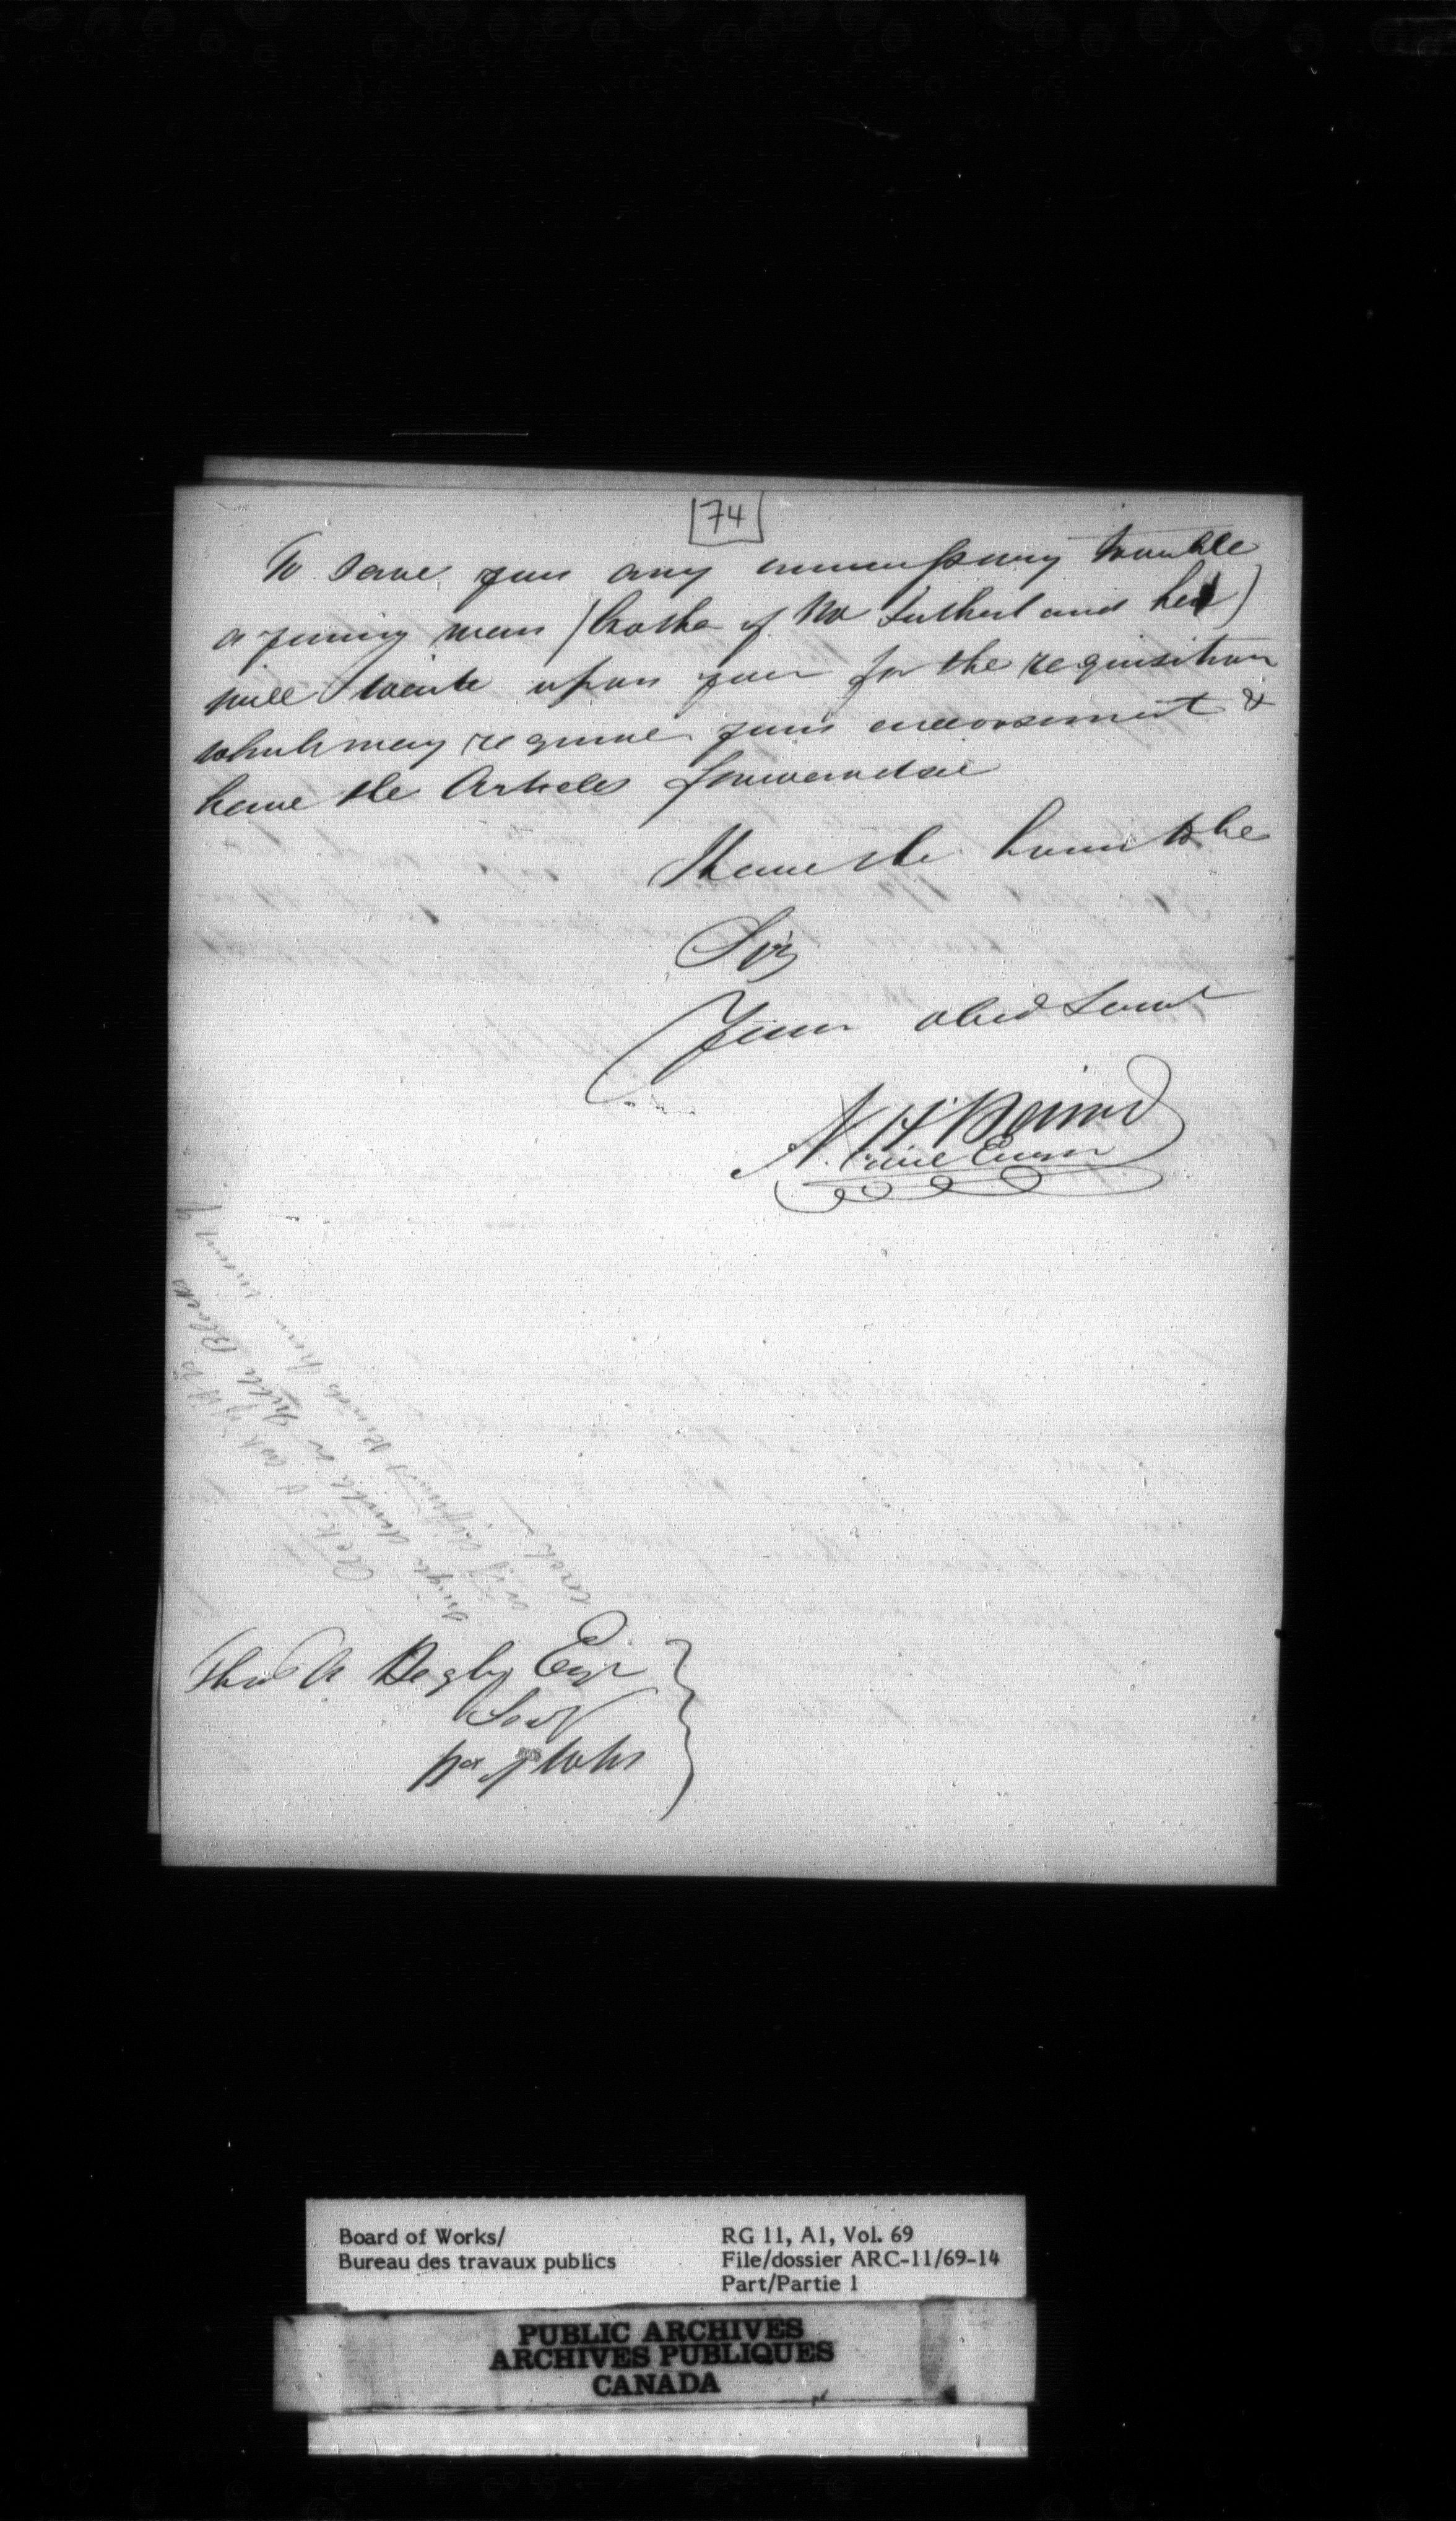 74
To save you any unnecessary trouble
a young man (brother of Mr Sutherland here)
will wait upon you for the requisition
which may require your endorsement &
have the Articles forwarded
I have the honor to be
Sir
Your obed Servt
N H Baird
Civil Engr
Thos A Begly Esqr
Secy
Bd of Wks
Board of Works/
Bureau des travaux publics
RG 11, A1, Vol. 69
File/dossier ARC-11/69-14
Part/Partie 1
PUBLIC ARCHIVES
ARCHIVES PUBLIQUES
CANADA